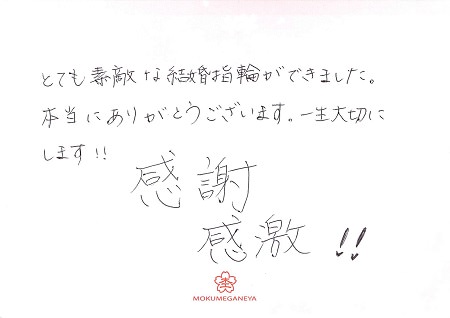 とても素敵な結婚指輪ができました。
本当にありがとうございます。一生大切に
します!!
感謝
感激!!
MOKUMEGANEYA